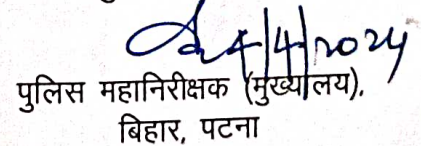 4/4/2024
पुलिस महानिरीक्षक (मुख्यालय),
बिहार, पटना